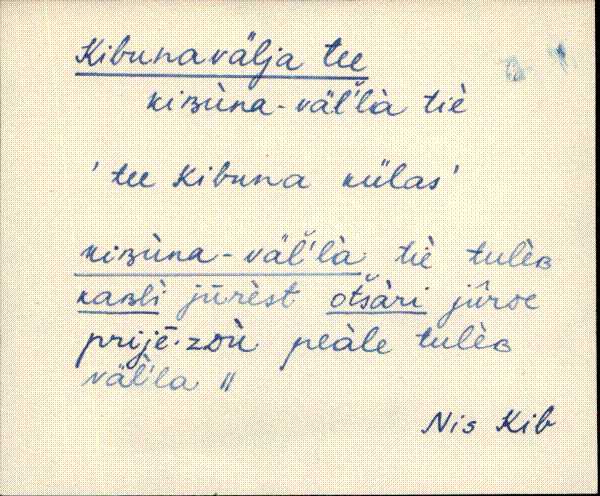 Kibunavälja tee
kiʙùna-väľľà tiè
' tee Kibuna külas '
kiʙùna-väľľà tiè tulèʙ
kaʙlì jūrèst otšàri jûrᴅe
prijē·zᴅù peàle tulèʙ
väľľa "
Nis Kib